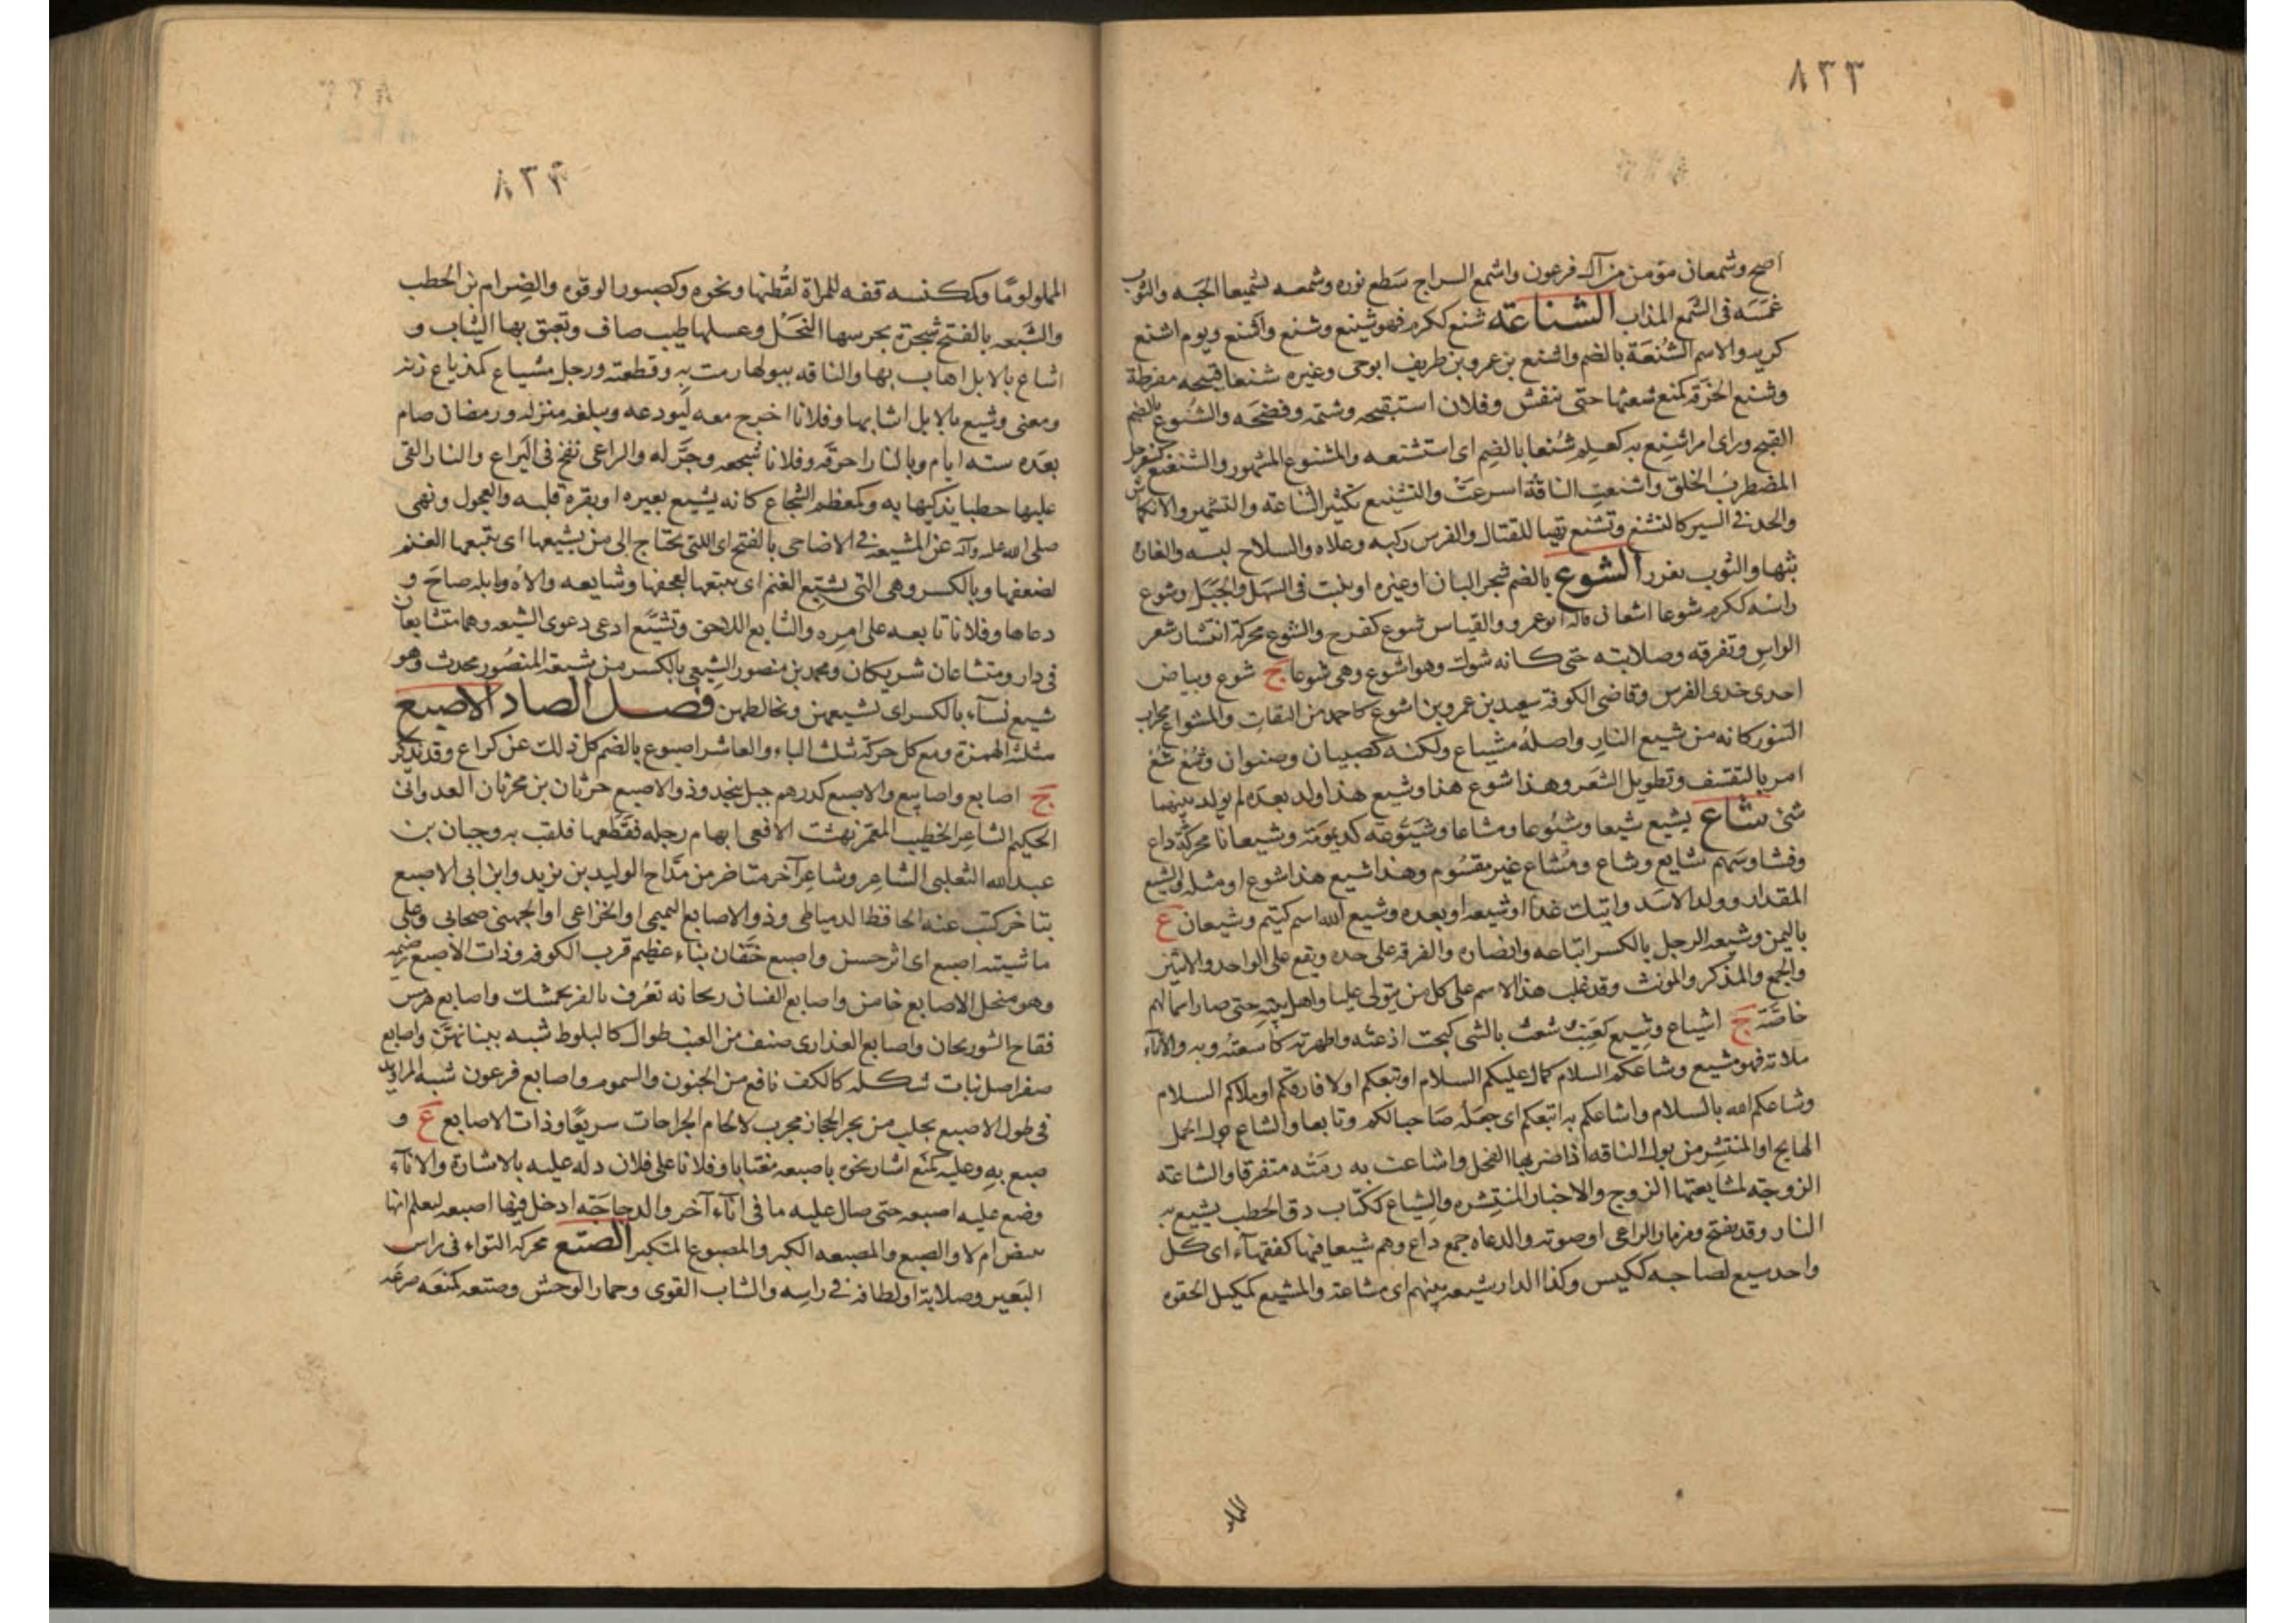 ٨٣٣
اصح وشمعان مؤمن من آل فرعون واشمع السراج سطع نوره وشمعه تشميعا الجبه والثوب
غمسه فى الشمع المذاب الشناعة شنع ككرم فهو شنيع وشنع واشنع ويوم اشنع
كريه والاسم الشُنعَة بالضم واشنع بن عمرو بن طريف ابوحى وغيره شنعا قبيحه مفرطة
وشنع الخرقه كمنع شعثها حتى تنفش وفلان استقبحه وشتمه وفضحه والشنوع بالضم
القبح وراى امرا شنع به كعلم شُنعا بالضم اى استشنعه والمشنوع المشهور والشنعنع كسفرجل
المضطرب الخلق واشنعت الناقة اسرعت والتشنيع تكثير الشناعة والتشمير والانكماش
والجد فى السير كالتشنع وتشنع تهيا للقتال والفرس ركبه وعلاه والسلاح لبسه والغارة
بثها والثوب تفزر الشوع بالضم شجر البان اوغيره او ينبت فى السهل والجبل وشوع
راسه ككرم شوعا اشعان قاله ابوعمرو والقياس شوع كفرح والشوع محركة انتشار شعر
الراس وتفرقه وصلابته حتى كانه شوك وهو اشوع وهى شوعا ج شوع وبياض
احدى خدى الفرس وقاضى الكوفة سعيد بن عمرو بن اشوع كاحمد من الثقات والمشواع محراث
التنور كانه من شيع النار واصله مشياع ولكنه كصبيان وصنوان وشُع شُع
امر بالتقشف وتطويل الشعر وهذا شوع هذا وشيع هذا ولد بعده لم يولد بينهما
شئ شاع يشيع شيعا وشيوعا ومشاعا وشيعوعة كديمومة وشيعانا محركة ذاع
وفشا وسهم شايع وشاع ومُشاع غير مقسوم وهذا شيع هذا شوع او مثله والشيع
المقدار وولد الاسد واتيك غدا او شيعه او بعده وشيع الله اسم كتيم وشيعان ع
باليمن وشيعه الرجل بالكسر اتباعه وانصاره والفرقه على حده ويقع على الواحد والاثنين
والجمع والمذكر والمونث وقد غلب هذا الاسم على كل من يتولى عليا واهل بيته حتى صار اسما لهم
خاصة ج اشياع وشيع كعنب شعت بالشى كبعت اذعته واظهرته كاشعته وبه والاناء
ملاته فهو مشيع وشاعكم السلام كمال عليكم السلام او تبعكم او لا فارقكم او ملاكم السلام
وشاعكم الله بالسلام واشاعكم به اتبعكم اى جعله صاحبا لكم وتابعا والشاع بول الجمل
الهايج او المنتشر من بول الناقه اذا ضربها الفحل واشاعت به رمته متفرقا والشاعة
الزوجه لمشايعتها الزوج والاخبار المنتشره والشياع ككتاب دق الحطب يشيع به
النار وقد يفتح ومزمار الراعى او صوته والدعاه جمع داع وهم شيعا فيها كفقهآء اى كل
واحد سيع لصاحبه ككيس وكذا الدار شيعه بينهم اى مشاعة والمشيع كمكيل الحقود
المملو
٨٣٤
المملو لومًا وككنسه قفه للمراة لقُطنها ونحوه وكصبور الوقود والضرام من الحطب
والشبعه بالفتح شجرة يجرسها النحل وعسلها طيب صاف وتعبق بها الثياب و
اشاع بالابل اهاب بها والناقه ببولها رمت به وقطعته ورجل مشياع كمذياع زنة
ومعنى وشيع بالابل اشابها وفلانا اخرج معه ليودعه ويبلغه منزله ورمضان صام
بعده سته ايام وبالنار احرقه وفلانا شجعه وجرّله والراعى نفخ فى اليراع والنار القى
عليها حطبا يذكيها به وكمعظم الشجاع كانه يشيع بغيره او بقره قلبه والعجول ونهى
صلى الله عليه وآله عن المشيعة فى الاضاحى بالفتح اى التى تحتاج الى من يشيعها اى يتبعها الغنم
لضعفها وبالكسر وهى التى تشيع الغنم اى تتبعها لعجفها وشايعه والاه وابله صاح و
دعاها وفلانا تابعه على امره والشايع اللاحق وتشيع ادعى دعوى الشيعه وهما متشايعان
فى دار ومتشاعان شريكان ومحمد بن منصور الشيعى بالكسر من شيعة المنصور محدث وهو
شيع نسآء بالكسر اى يشيعهن ويخالطهن فصل الصاد الاصبع
مثلثة الهمزة ومع كل حركة تثلث الباء والعاشر اصبوع بالضم كل ذلك عن كراع وقد تذكر
ج اصابع واصابيع والاصبع كدرهم جبل بنجد وذو الاصبع حرثان بن محرثان العدوانى
الحكيم الشاعر الخطيب المعمر نهشت الافعى ابهام رجله فقطعها فلقب به وحبان بن
عبد الله الثعلبى الشاعر وشاعر آخر متاخر من مدّاح الوليد بن يزيد وابن ابى الاصبع
متاخر كتب عنه الحافظ الدمياطى وذو الاصابع التميمى او الخزاعى او الجهنى صحابى وعلى
ماشيته اصبع اى اثر حسن واصبع خفّان بناء عظيم قرب الكوفه وذات الاصبع رضيمه
وهو مغل الاصابع خاين واصابع الفتيات ريحانه تعرف بالفرنجمشك واصابع هرمس
فقاح السورنجان واصابع العذارى صنف من العنب طوال كالبلوط شبه ببنانهن واصابع
صفر اصل نبات شكله كالكف نافع من الجنون والسموم واصابع فرعون شبه المراويد
فى طول الاصبع يجلب من بحر الحجاز مجرب لالحام الجراحات سريعًا وذات الاصابع ع و
صبع به وعليه كمنع اشار نحوه باصبعه مغتابا وفلانا على فلان دله عليه بالاشارة والانآء
وضع عليه اصبعه حتى سال عليه ما فى انآء آخر والدجاجة ادخل فيها اصبعه ليعلم انها
تبيض ام لا والصبع والمصبعه الكبر والمصبوع المتكبر الصتع محركه التواء فى راس
البعير وصلابة او لطافة فى راسه والشاب القوى وحمار الوحش وصتعه كمنعه صرعه